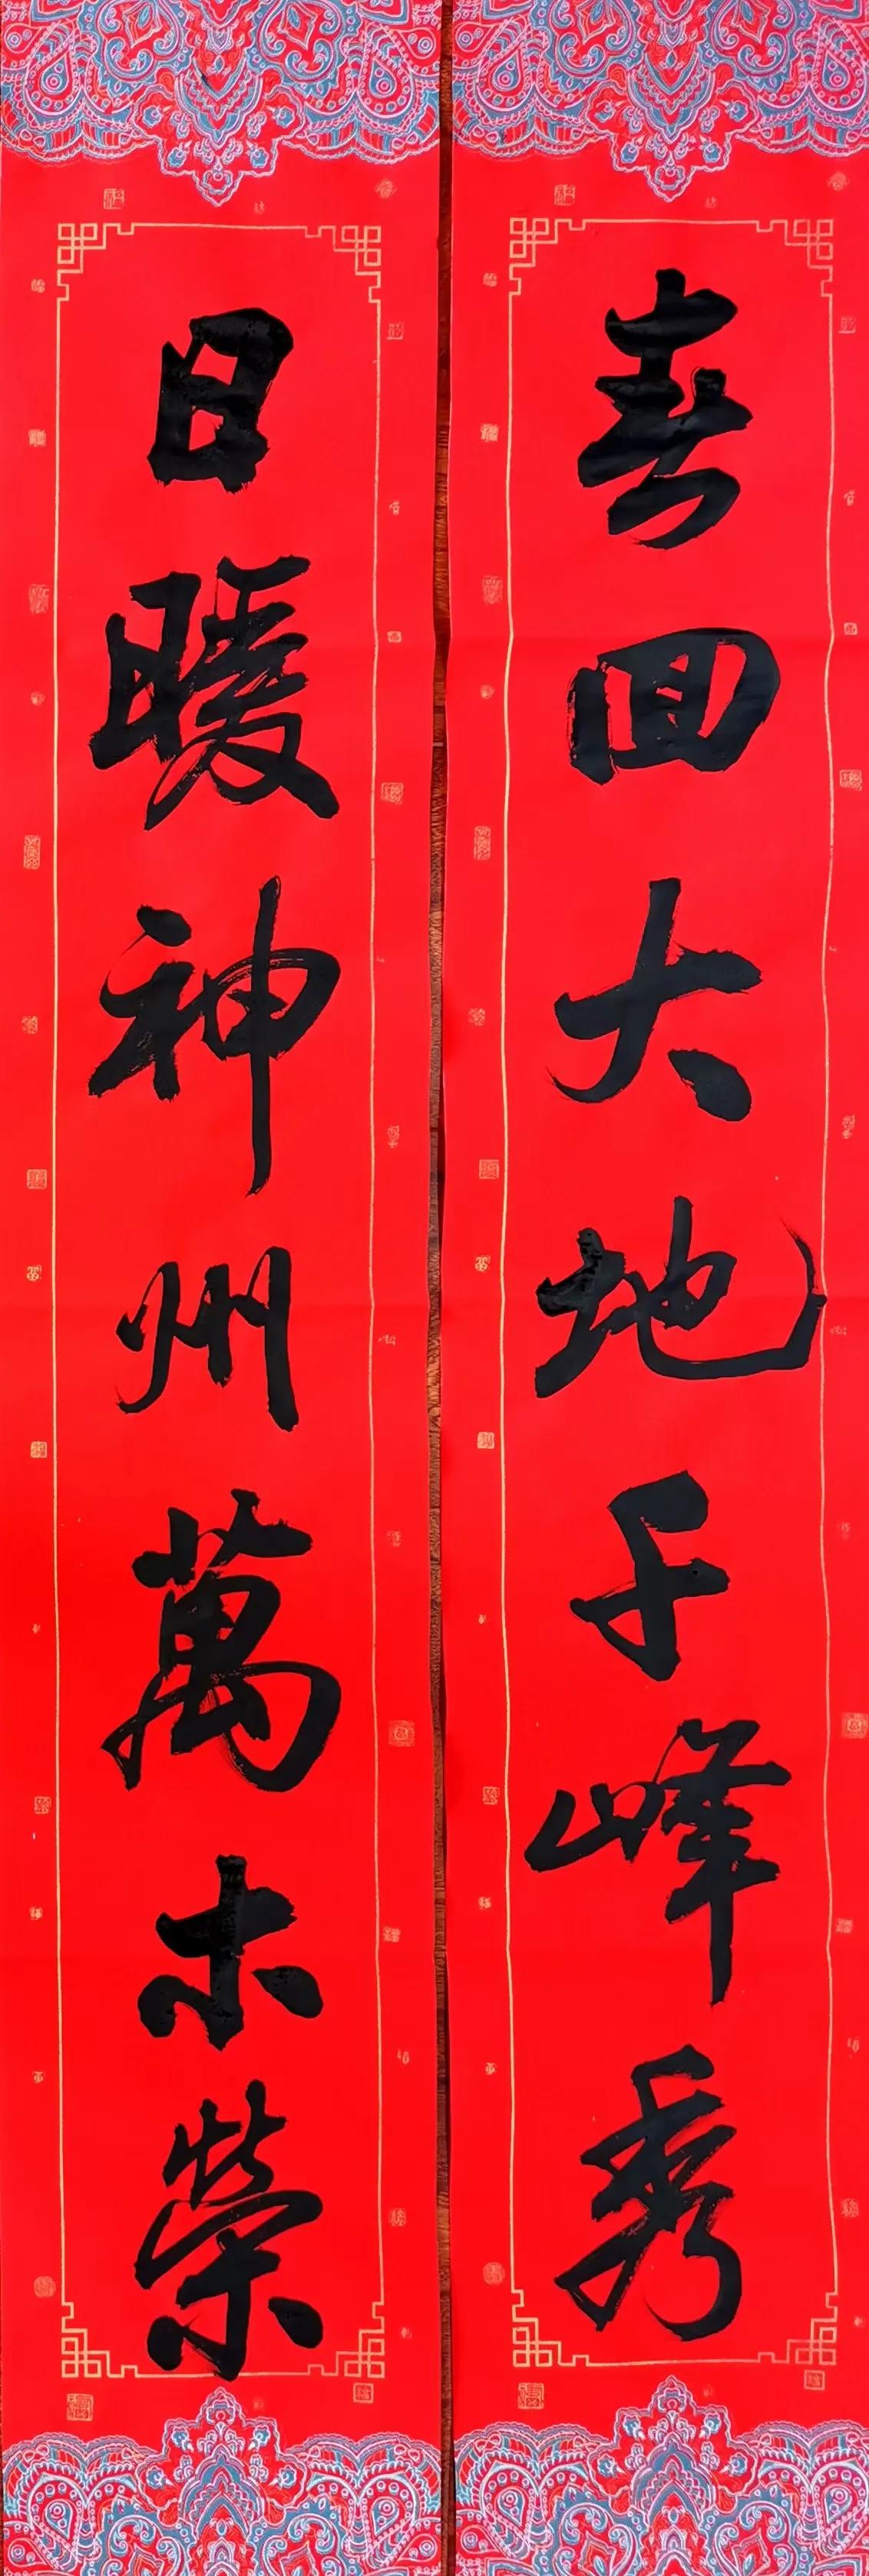 春回大地千峰秀
日暖神州萬木榮